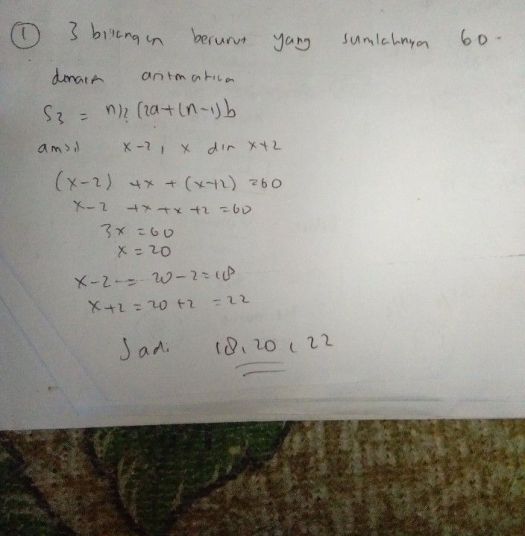 ① 3 bilangan berurut yang sumlahnya 60.
dengan aritmatika
S3 = n/2 (2a+(n-1)b
ambil x-2, x dan x+2
(x-2) +x + (x+2) =60
x-2 +x+x+2 =60
3x =60
x =20
x-2 = 20-2=18
x+2 =20+2 =22
Jadi 18, 20, 22